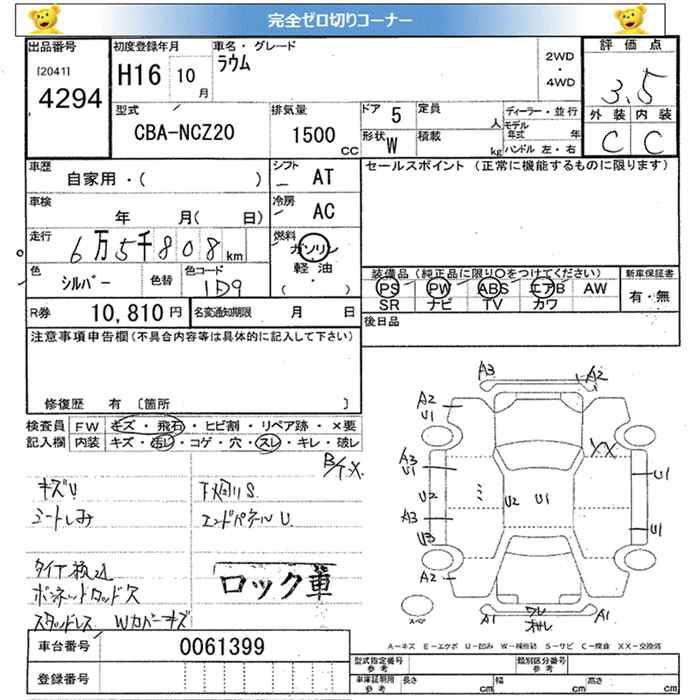 完全ゼロ切りコーナー
出品番号 初度登録年月 車名・グレード 評価点
[2041] H16 10月 ラウム 2WD・4WD 3.5
4294
型式 排気量 ドア 5 定員 人 ディーラー・並行 外装 内装
CBA-NCZ20 1500cc 形状 W 積載 kg モデル年式 年 C C
ハンドル 左・右
車歴 シフト セールスポイント (正常に機能するものに限ります)
自家用・( ) AT
車検 冷房
年 月( 日) AC
走行 燃料
6万5千808km ガソリン
軽油
( ・ )
色 シルバー 色替 色コード 1D9
装備品(純正品に限り○をつけてください) 新車保証書
PS PW ABS エアB AW 有・無
SR ナビ TV カワ
R券 10,810円 名変通知期限 月 日
後日品
注意事項申告欄(不具合内容等は具体的に記入して下さい)
修復歴 有 〔箇所
検査員記入欄 FW キズ・飛石・ヒビ割・リペア跡・×要
内装 キズ・汚レ・コゲ・穴・スレ・キレ・破レ
キズU 下廻りS
シートしみ エンドパネルU
ボンネットロッド欠
ロック車
スタッドレス Wカバーキズ
A3 A2
A2
U1
XX
A3
U1 U1
U2 U2 U1
A3
U3 U1
A2
A1 ワレ A1
スペア
A-キズ E-エクボ U-凹み W-補修跡 S-サビ C-腐食 XX-交換済
車台番号 0061399
登録番号
型式指定番号 参考 類別区分番号 参考
車庫証明用 参考 長さ cm 幅 cm 高さ cm